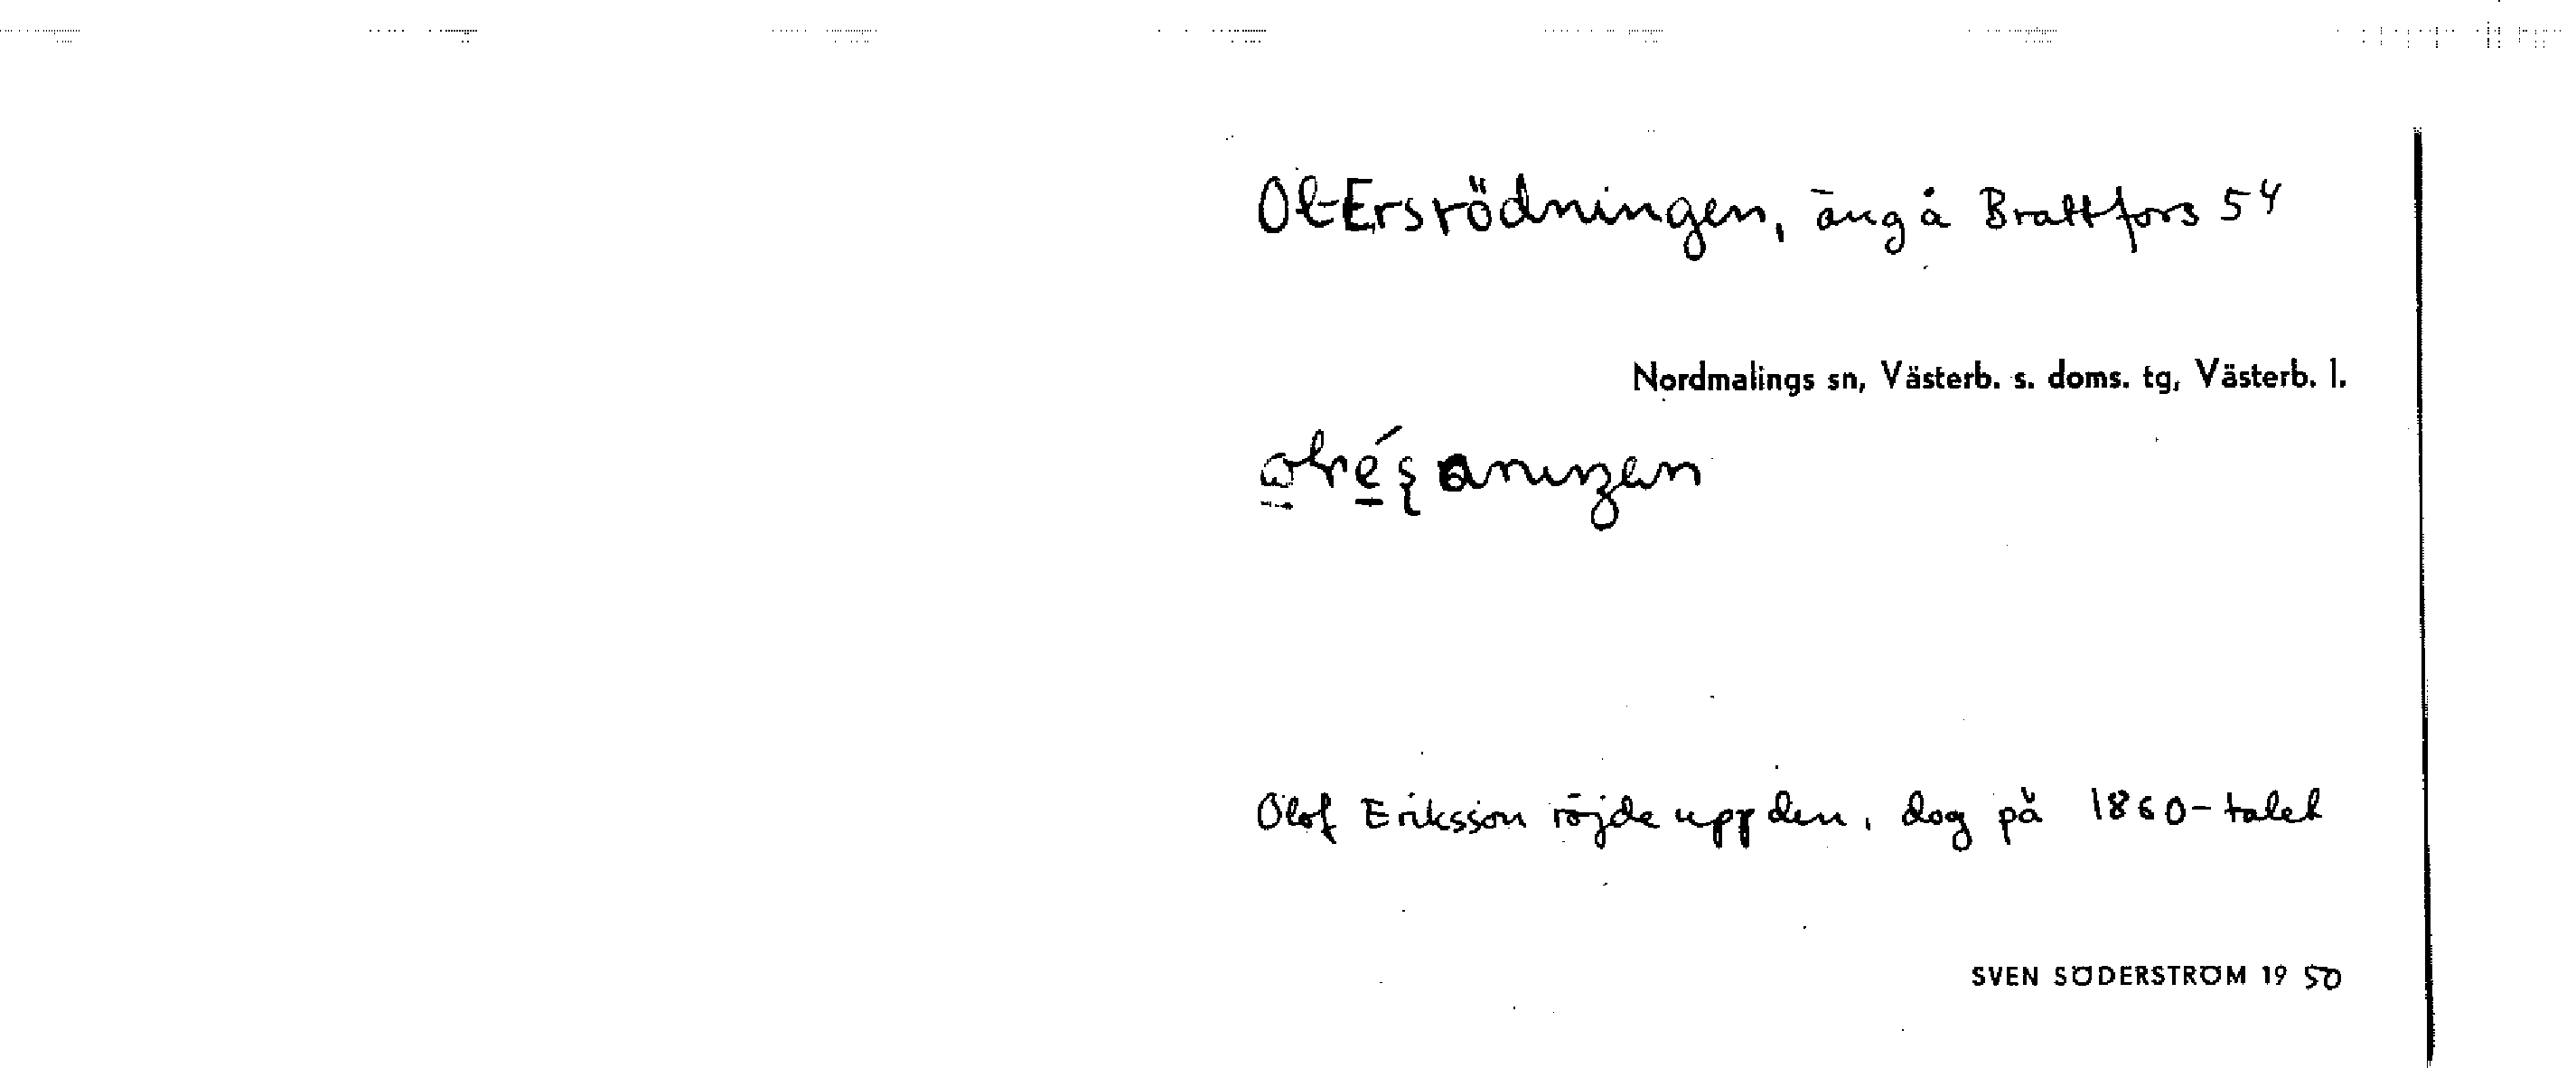 Ol-Ersrödningen, äng å Brattfors 54
Nordmalings sn, Västerb. s. doms. tg, Västerb. l.
Olof Eriksson röjde upp den, dog på 1860-talet
SVEN SÖDERSTRÖM 19 50